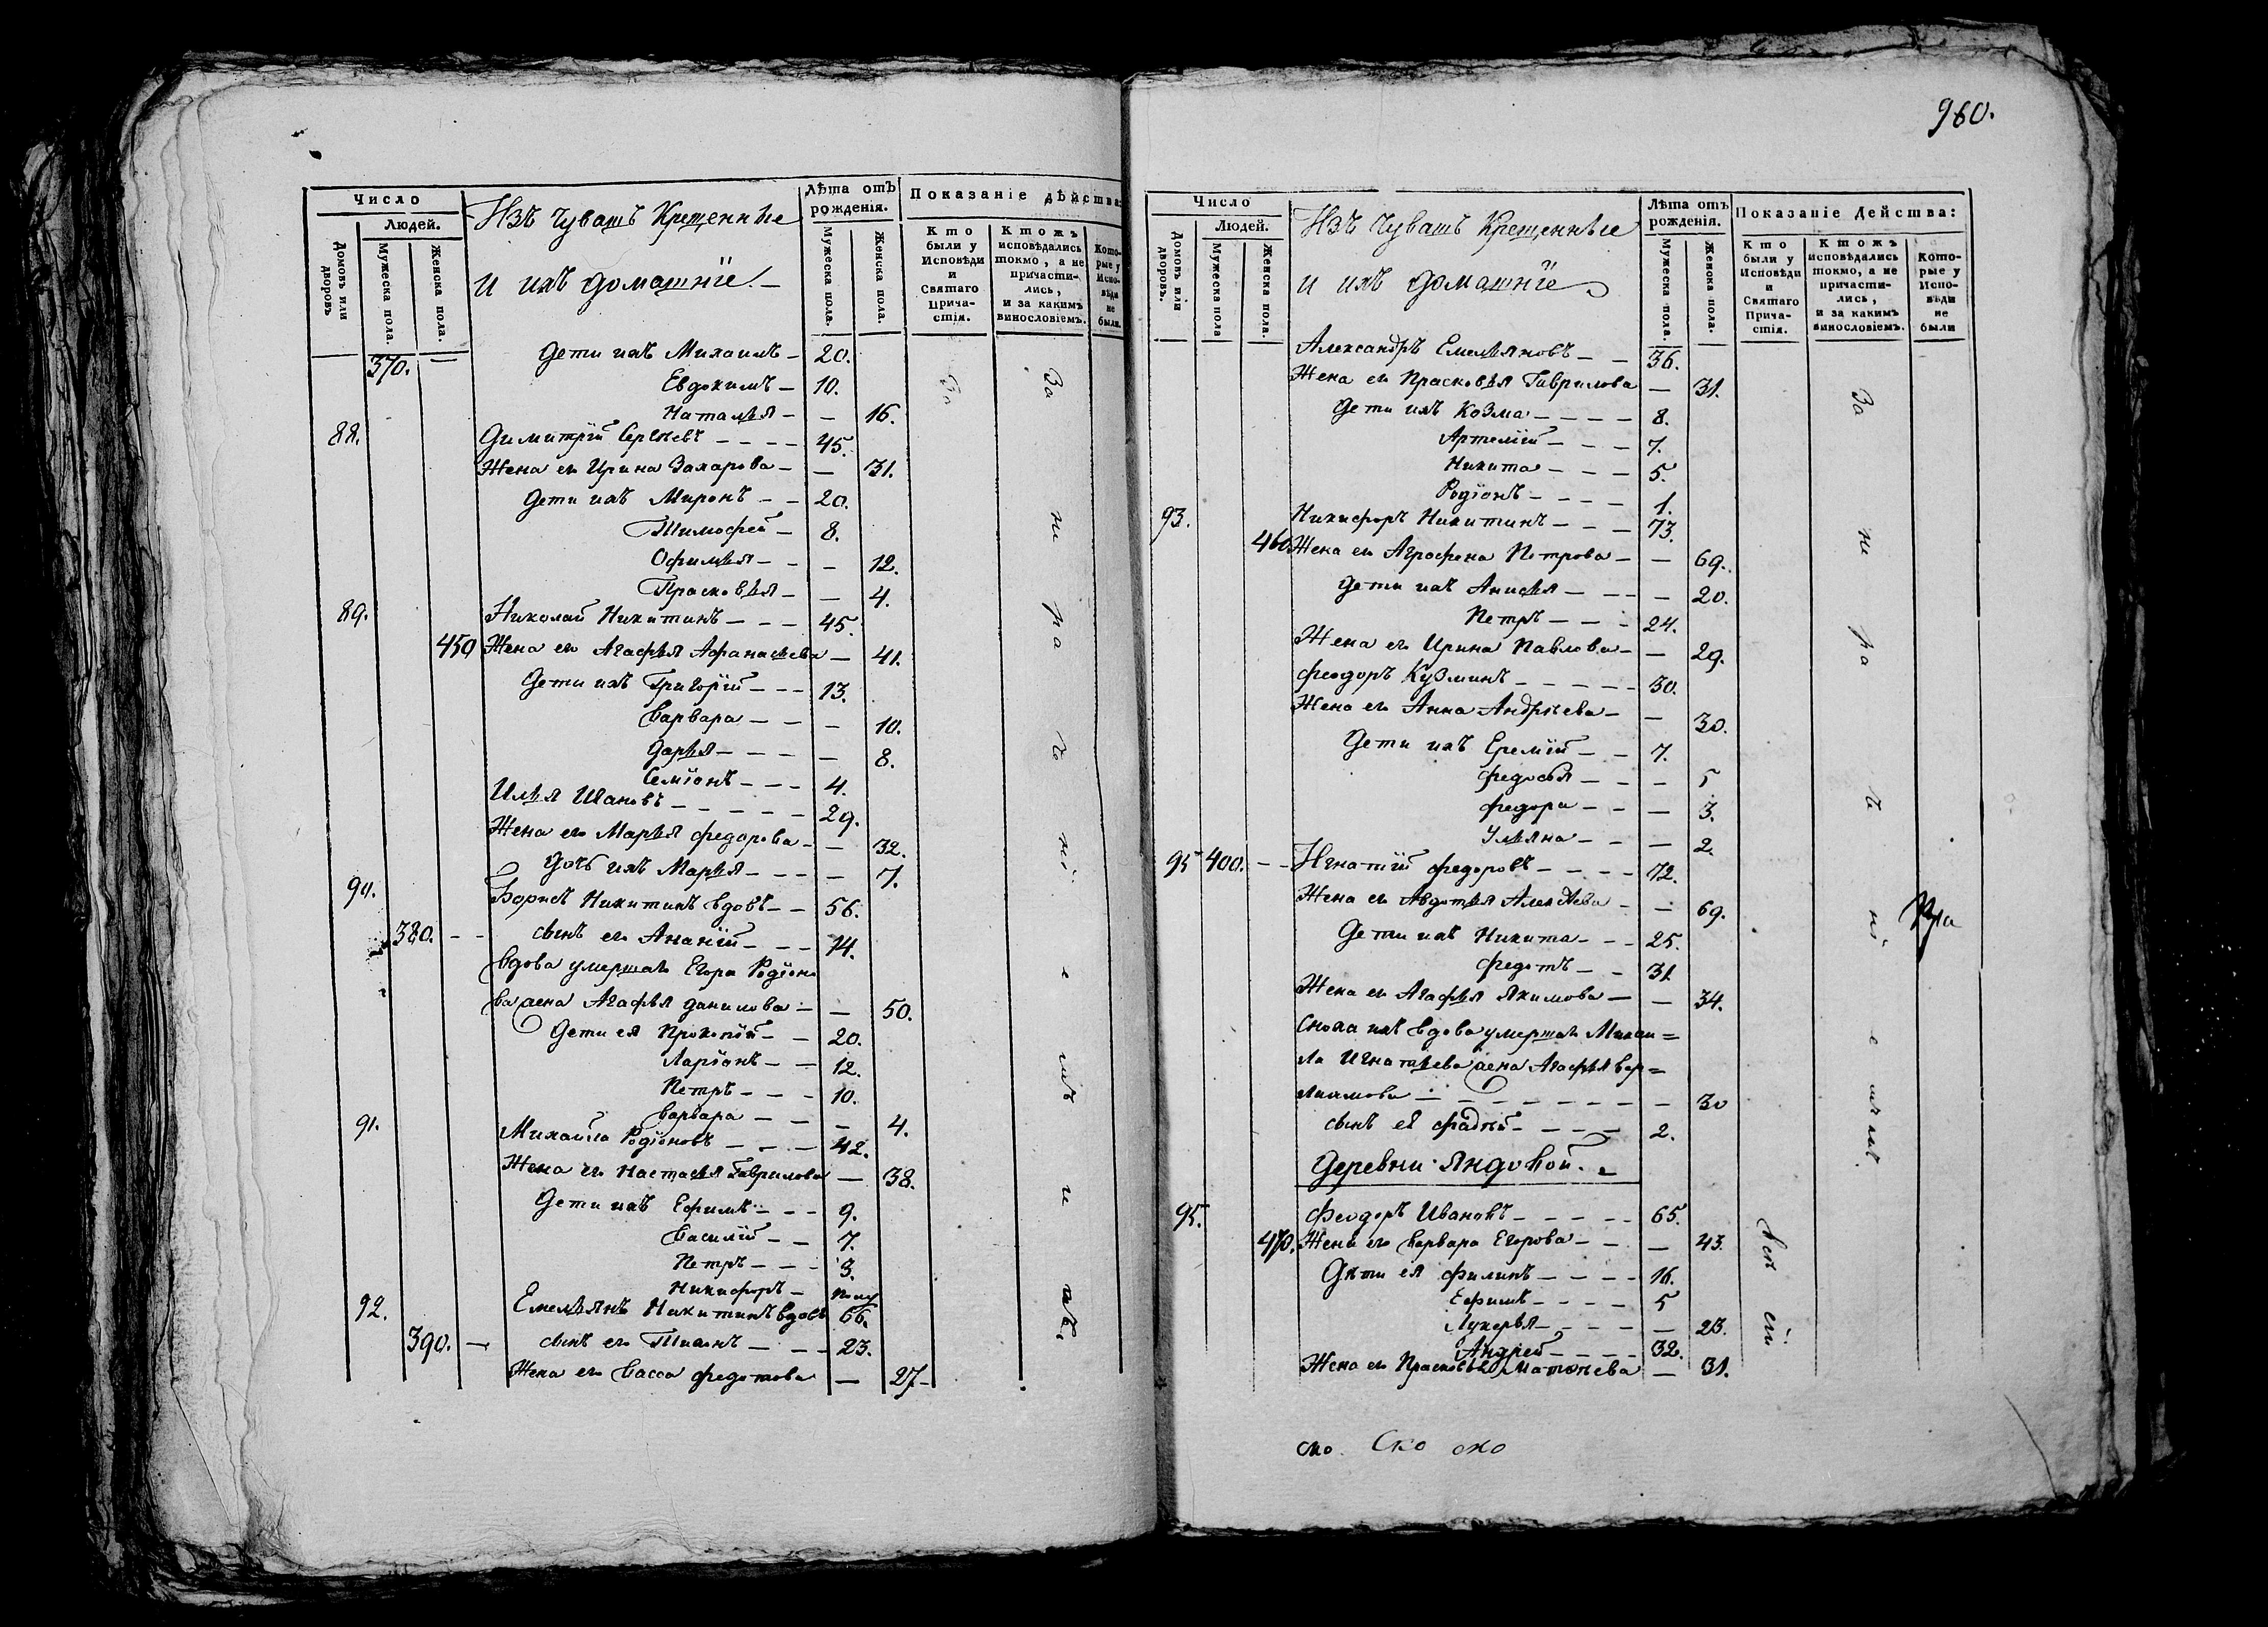 960.
Число
Людей.
Домовъ или дворовъ
Мужеска пола.
Женска пола.
Изъ Чувашъ Крещенные
и ихъ домашнїе
Лѣта отъ рожденія.
Мужеска пола.
Женска пола.
Показаніе дѣйства:
Кто были у Исповѣди и Святаго Прича-стія.
Ктожъ исповѣдались токмо, а не причасти-лись, и за какимъ винословіемъ.
Кото-рые у Испо-вѣди не были.
370. — дети ихъ Михаилъ – 20.
Евдокимъ – 10.
Наталья – – 16.
88. Димитрїй Сергѣевъ – – – – 45.
Жена ег Ирина Захарова – – 31.
дети ихъ Миронъ – – 20.
Тимофей – 8.
Офимья – – – 12.
Прасковья – – 4.
89. Николай Никитинъ – – – 45.
450 Жена ег Агафья Афанасьева – 41.
Дети ихъ Григорїй – – – 13.
Варвара – – – 10.
Дарья – – – – 8.
Семїонъ – – – 4.
Илья Ивановъ – – – – – 29.
Жена его Марья федорова – – 32.
Дочь ихъ Марья – – – – 7.
90. Борисъ Никитинъ вдовъ – – 56.
380. – – сынъ ег Ананїй – – – 14.
вдова умершаг Егора Родїоно
ва жена Агафья данилова – – 50.
Дети ея Прокопїй – – 20.
Ларїонъ – – 12.
Петръ – – – 10.
Варвара – – – 4.
91. Михайла Родїоновъ – – – 42.
Жена ег Настасья Гаврилова – 38.
Дети ихъ Ефимъ – – – 9.
Василїй – – 7.
Петръ – – – 3.
Никифоръ – полу
92. Емельянъ Никитинъ вдовъ 66.
390. — сынъ ег Тихонъ – – – 23.
Жена ег Васса федотова — 27 –
За не ра че нї е мъ и хъ.
Число
Людей.
Домовъ или дворовъ.
Мужеска пола
Женска пола.
Изъ Чувашъ Крещенные
и ихъ домашнїе
Лѣта отъ рожденія.
Мужеска пола.
Женска пола.
Показаніе Действа:
Кто были у Исповѣди и Святаго Прича-стія.
Ктожъ исповѣдались токмо, а не причасти-лись, и за какимъ винословіемъ.
Кото-рые у Испо-вѣди не были
Александръ Емельяновъ – – 36.
Жена ег Прасковья Гаврилова — 31.
Дети ихъ Козма – – – – 8.
Артемїй – – – 7.
Никита – – – 5.
Родїонъ – – – – 1.
93. Никифоръ Никитинъ – – – 73.
460 Жена ег Аграфена Петрова – — 69.
Дети ихъ Анисья – – – – 20.
Петръ – – – 24.
Жена ег Ирина Павлова – — 29.
Феодоръ Кузминъ – – – – – 30.
Жена ег Анна Андрѣева – — 30.
Дети ихъ Еремїй – – 7.
федосья – – – 5
федора – – — 3.
Ульяна – – — 2.
95 400. – – Игнатїй федоровъ – – – – 72.
Жена ег Авдотья Алексѣева – – 69.
Дети ихъ Никита – – – 25.
федотъ – – 31
Жена ег Агафья Якимова — — 34.
Сноха ихъ вдова умершаг Михаи=
ла Игнатьева жена Агафья Вар=
ламова – – – – – – – – 30
сынъ ея фадѣй – – – – 2.
Деревни Яндовой.
95. Феодоръ Ивановъ – – – – – 65.
470. Жена ег Варвара Егорова – – — 43.
Дѣти ея Филипъ – – – – 16.
Ефимъ – – – – 5
Лукерья – – – – — 23.
Андрей – – – – 32.
Жена ег Прасковья Матвѣева — 31.
За не ра че нї е мъ
ско. Ско око